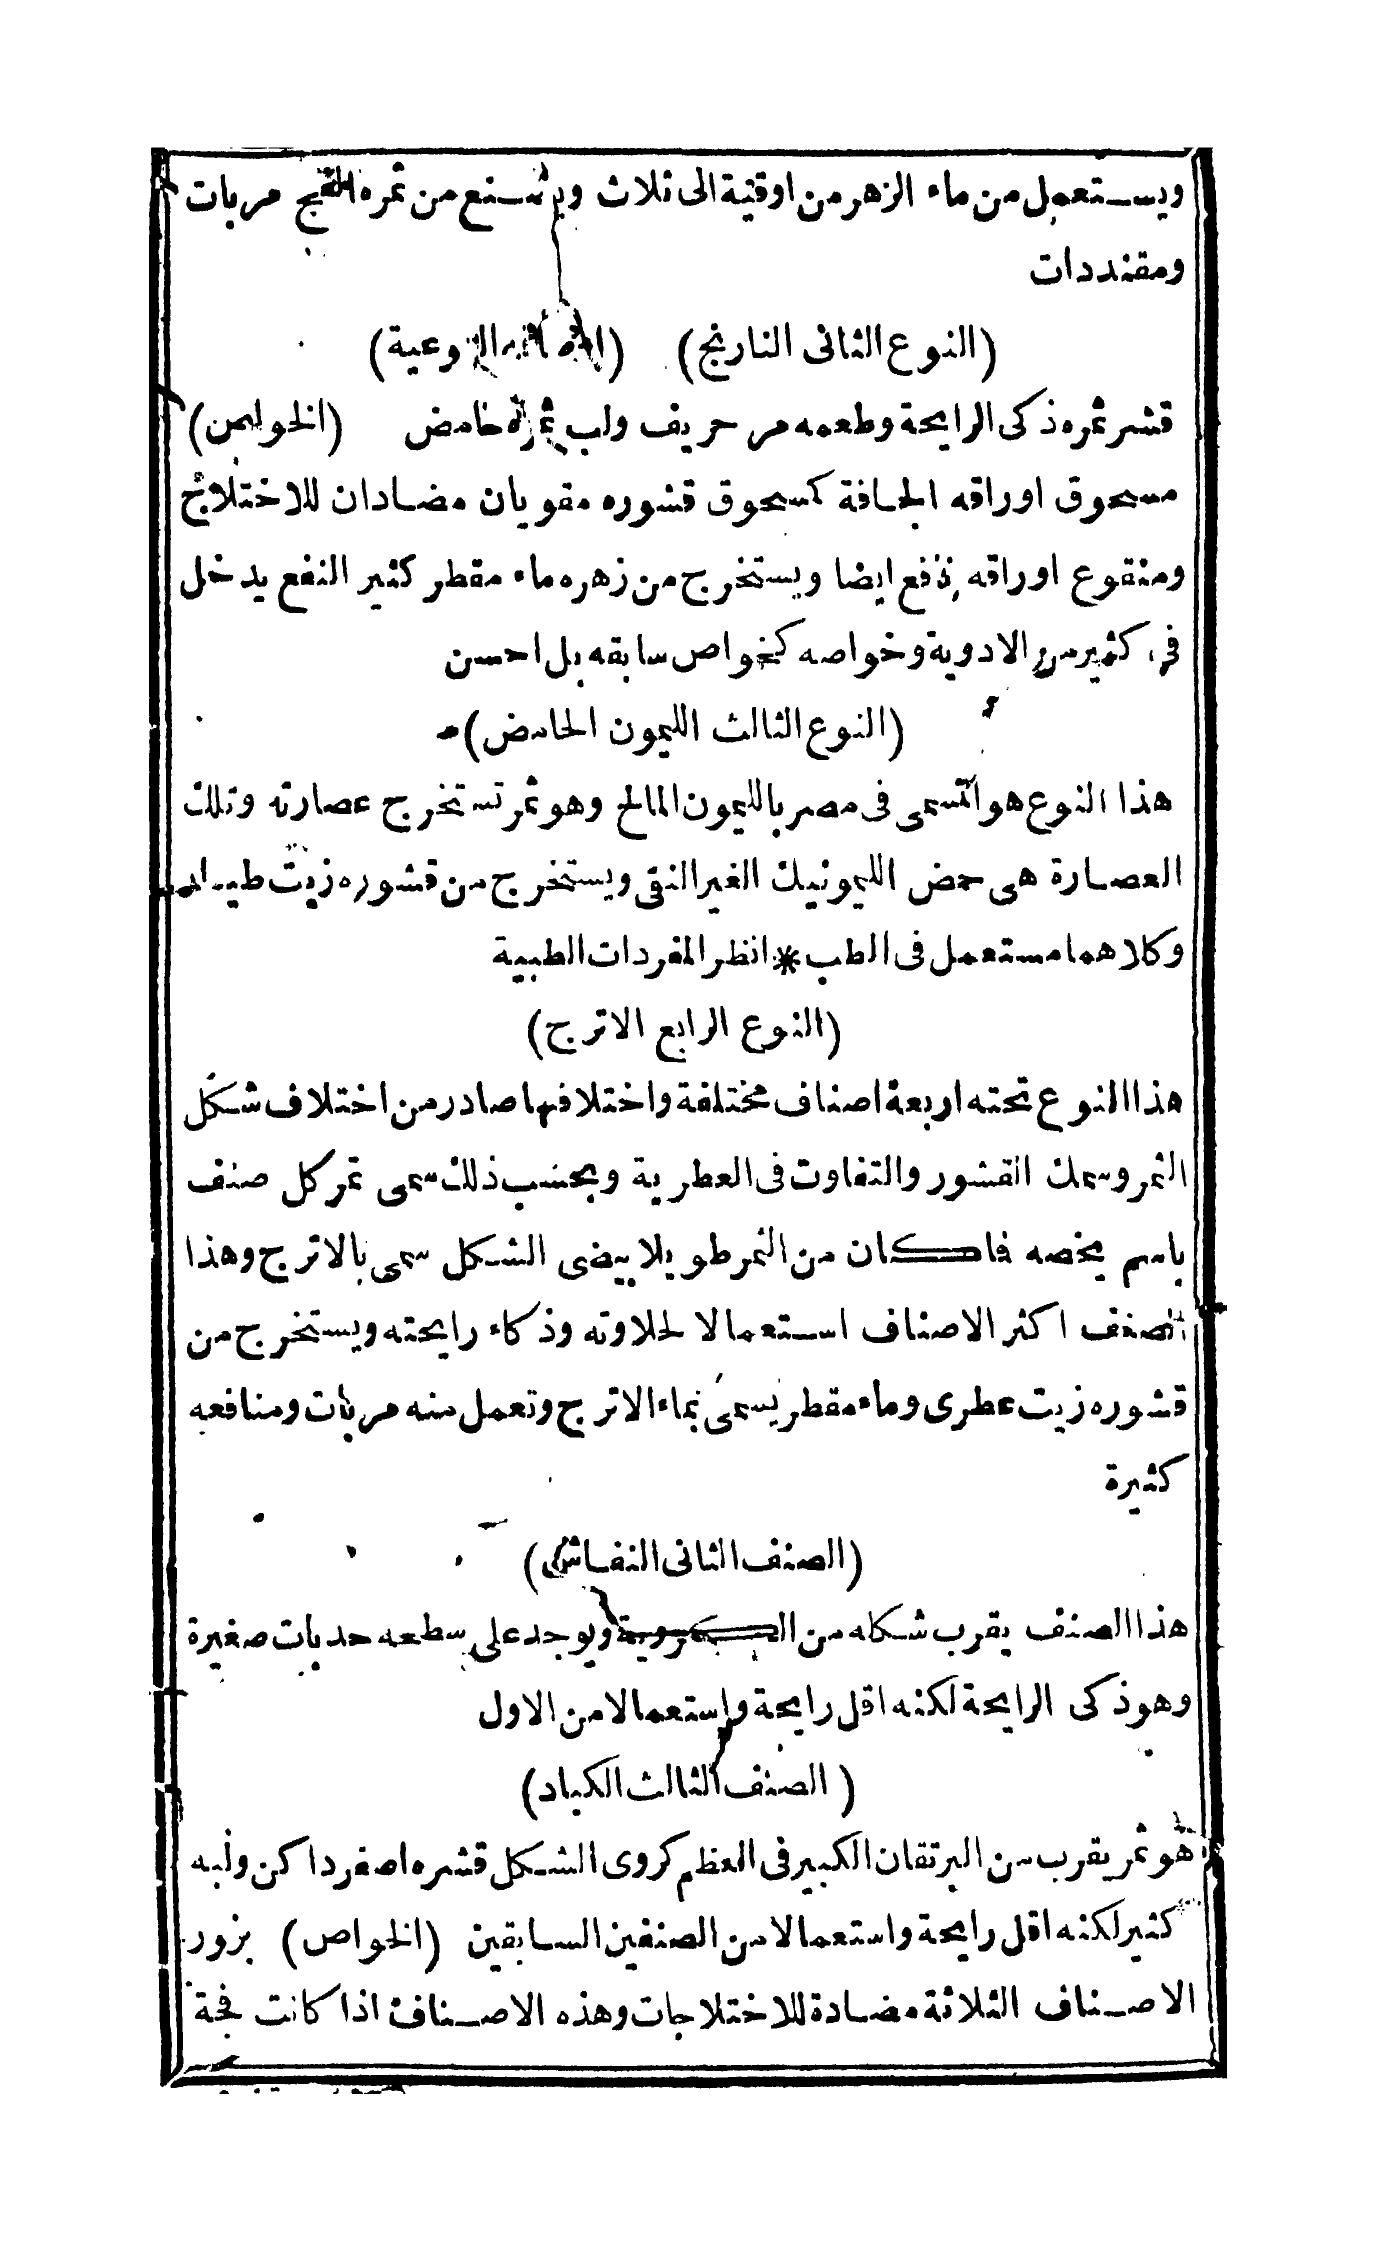 ويستعمل من ماء الزهر من اوقية الى ثلاث ويصنع من ثمره الفج مربات
ومقندات
(النوع الثانى النارنج) (الصفات النوعية)
قشر ثمره ذكى الرايحة وطعمه مر حريف ولب ثمره حامض (الخواص)
مسحوق اوراقه الجافة كمسحوق قشوره مقويان مضادان للاختلاج
ومنقوع اوراقه نافع ايضا ويستخرج من زهره ماء مقطر كثير النفع يدخل
فى كثير من الادوية وخواصه كخواص سابقه بل احسن
(النوع الثالث الليمون الحامض)
هذا النوع هو المسمى فى مصر بالليمون المالح وهو ثمر تستخرج عصارته وتلك
العصارة هى حمض الليمونيك الغير النقى ويستخرج من قشوره زيت طيار
وكلاهما مستعمل فى الطب * انظر المفردات الطبية
(النوع الرابع الاترج)
هذا النوع تحته اربعة اصناف مختلفة واختلافها صادر من اختلاف شكل
الثمر وسمك القشور والتفاوت فى العطرية وبحسب ذلك سمى ثمر كل صنف
باسم يخصه فاكان من الثمر طويلا بيضى الشكل سمى بالاترج وهذا
الصنف اكثر الاصناف استعمالا لحلاوته وذكاء رايحته ويستخرج من
قشوره زيت عطرى وماء مقطر يسمى بماء الاترج وتعمل منه مربات ومنافعه
كثيرة
(الصنف الثانى النفاش)
هذا الصنف يقرب شكله من الكروية ويوجد على سطحه حدبات صغيرة
وهو ذكى الرايحة لكنه اقل رايحة واستعمالا من الاول
(الصنف الثالث الكباد)
هو ثمر يقرب من البرتقان الكبير فى العظم كروى الشكل قشره اصفر داكن ولبه
كثير لكنه اقل رايحة واستعمالا من الصنفين السابقين (الخواص) بزور
الاصناف الثلاثة مضادة للاختلاجات وهذه الاصناف اذا كانت فجة